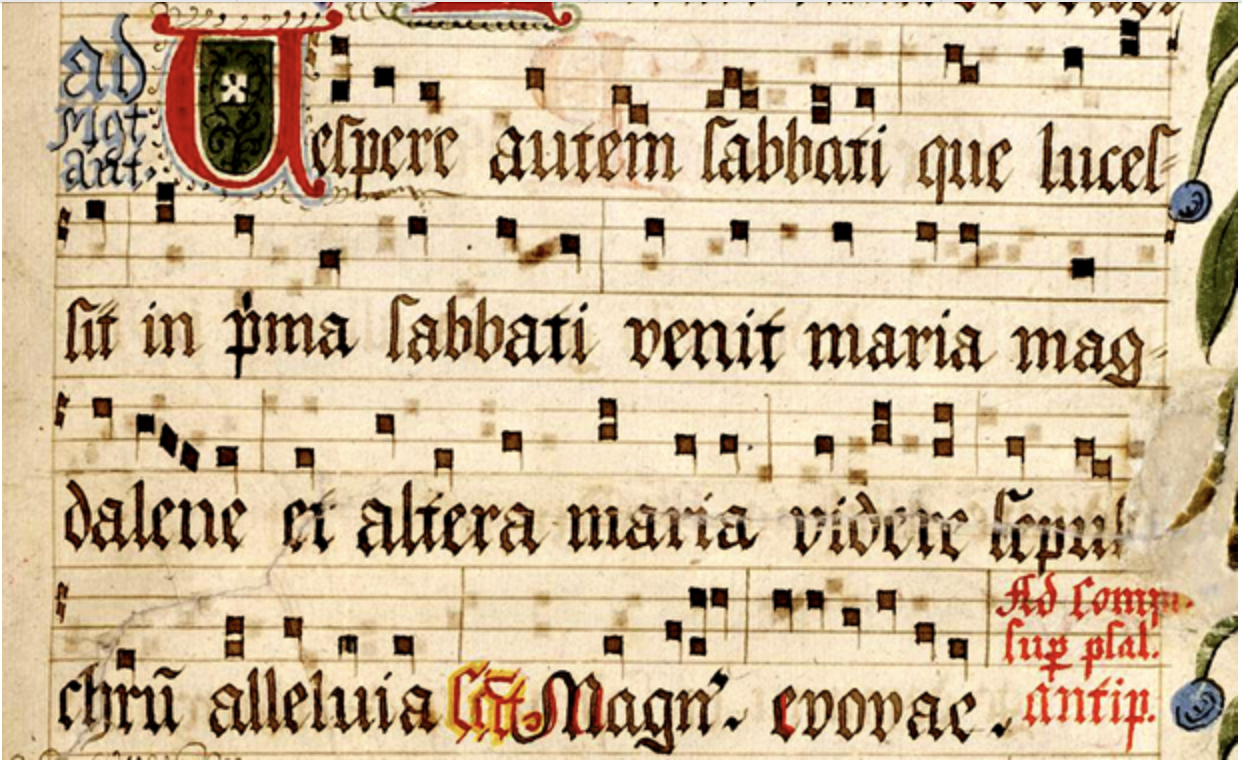 ad
Mgt
ant.
Uespere autem sabbati que luces
sit in pma sabbati venit maria mag
dalene et altera maria videre sepul
chrū alleluia Magn. evovae.
Ad Comp
sup psal.
antip.